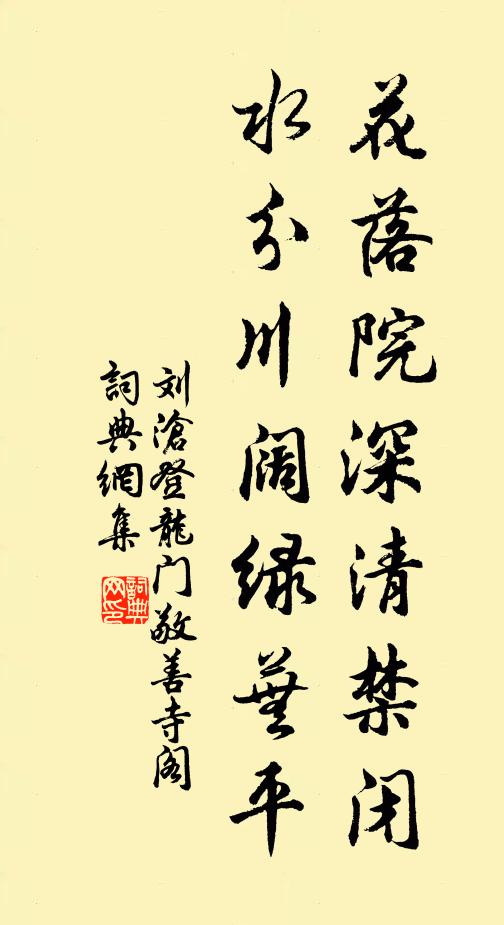 花落院深清禁闭
水分川阔绿芜平
刘沧登龍门敬善寺阁
词典網集
詞典网印